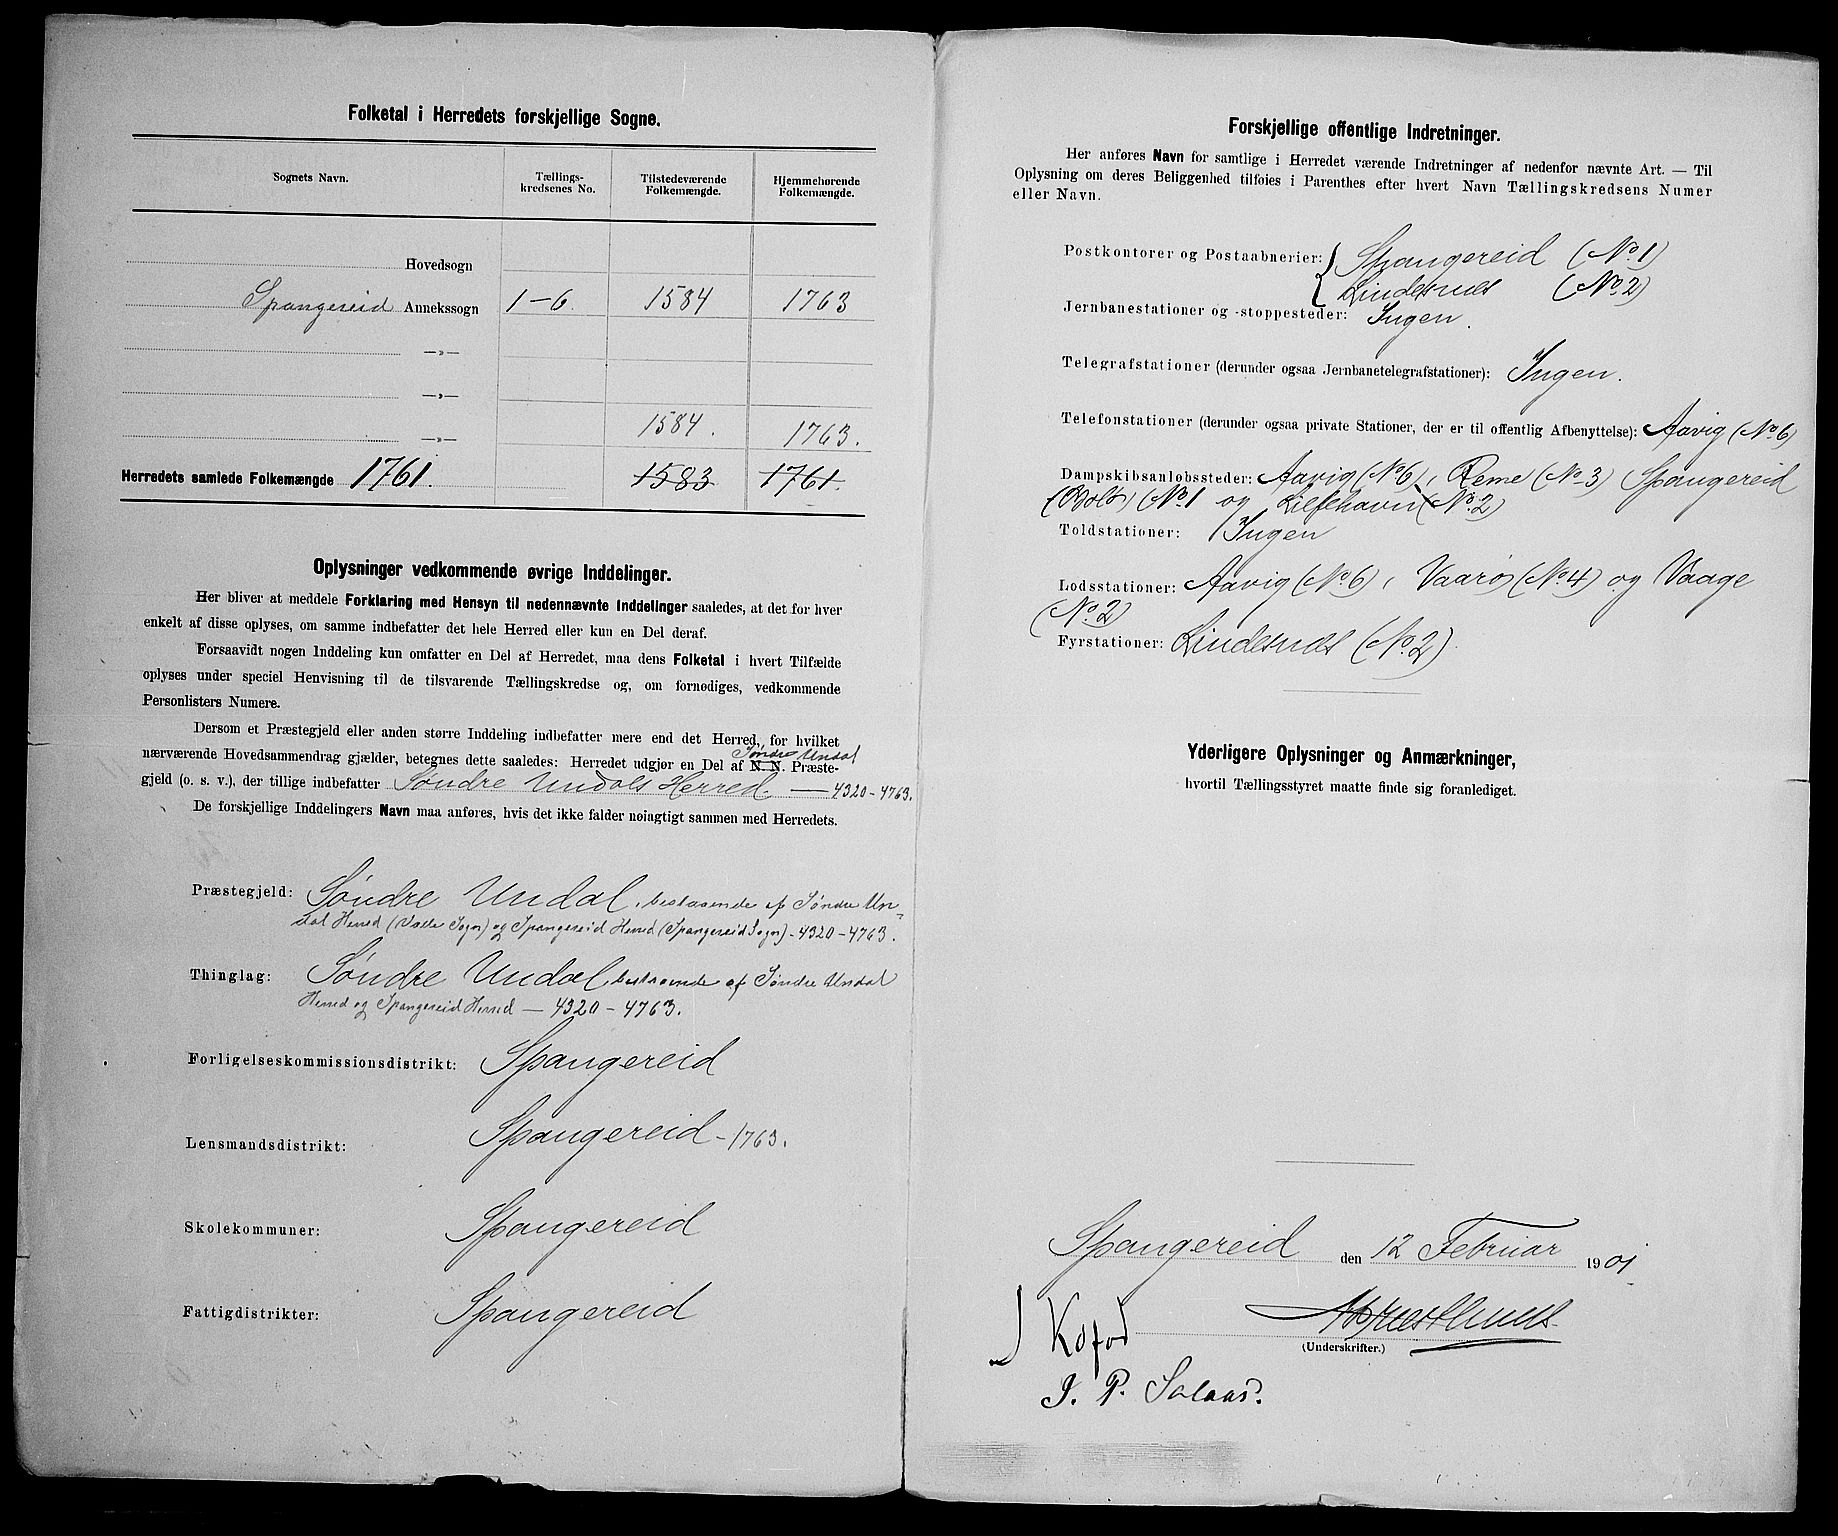 Folketal i Herredets forskjellige Sogne.
Sognets Navn.
Tællings-
kredsenes No.
Tilstedeværende
Folkemængde.
Hjemmehørende
Folkemængde.
Hovedsogn
Spangereid Annekssogn 1-6. 1584 1763
—»—
—»—
—»— 1584. 1763.
Herredets samlede Folkemængde 1761. 1583 1761.
Oplysninger vedkommende øvrige Inddelinger.
Her bliver at meddele Forklaring med Hensyn til nedennævnte Inddelinger saaledes, at det for hver
enkelt af disse oplyses, om samme indbefatter det hele Herred eller kun en Del deraf.
Forsaavidt nogen Inddeling kun omfatter en Del af Herredet, maa dens Folketal i hvert Tilfælde
oplyses under speciel Henvisning til de tilsvarende Tællingskredse og, om fornødiges, vedkommende
Personlisters Numere.
Dersom et Præstegjeld eller anden større Inddeling indbefatter mere end det Herred, for hvilket
Søndre Undal
nærværende Hovedsammendrag gjælder, betegnes dette saaledes: Herredet udgjør en Del af N. N. Præste-
gjeld (o. s. v.), der tillige indbefatter Søndre Undals Herred. — 4320-4763.
De forskjellige Inddelingers Navn maa anføres, hvis det ikke falder nøiagtigt sammen med Herredets.
Præstegjeld: Søndre Undal, bestaaende af Søndre Un-
dal Herred (Valle Sogn) og Spangereid Herred (Spangereid Sogn) - 4320-4763.
Thinglag: Søndre Undal, bestaaende af Søndre Undal
Herred og Spangereid Herred — 4320-4763.
Forligelseskommissionsdistrikt: Spangereid
Lensmandsdistrikt: Spangereid - 1763.
Skolekommuner: Spangereid
Fattigdistrikter: Spangereid
Forskjellige offentlige Indretninger.
Her anføres Navn for samtlige i Herredet værende Indretninger af nedenfor nævnte Art. — Til
Oplysning om deres Beliggenhed tilføies i Parenthes efter hvert Navn Tællingskredsens Numer
eller Navn.
Postkontorer og Postaabnerier: Spangereid (No. 1)
Lindesnæs (No. 2)
Jernbanestationer og -stoppesteder: Ingen.
Telegrafstationer (derunder ogsaa Jernbanetelegrafstationer): Ingen.
Telefonstationer (derunder ogsaa private Stationer, der er til offentlig Afbenyttelse): Aavig (No. 6)
Dampskibsanløbssteder: Aavig (No. 6), Reme (No. 3) Spangereid
(No. 1 og Lillehavn (No. 2)
Toldstationer: Ingen
Lodsstationer: Aavig (No. 6), Vaarø (No. 4) og Vaage
(No. 2)
Fyrstationer: Lindesnæs (No. 2).
Yderligere Oplysninger og Anmærkninger,
hvortil Tællingsstyret maatte finde sig foranlediget.
Spangereid den 12 Februar 1901
J Kofod
(Underskrifter.)
J. P. Salaas.